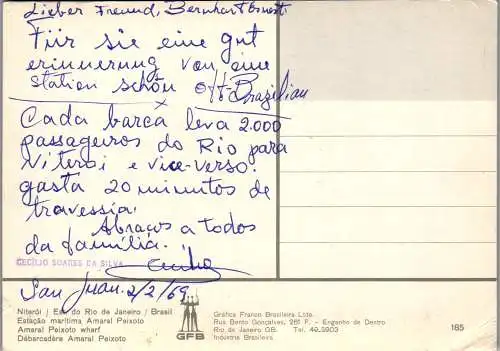 Lieber Freund, Bernhart Ernst
Für sie eine gut
erinnerung von eine
station schön off-Brazilian
Cada barca leva 2.000
passageiros do Rio para
Niteroi e vice-verso.
gasta 20 minutos de
travessia.
Abraços a todos
da família.
CECILIO SOARES DA SILVA
San Juan. 2/2/69
Niterói / Est. do Rio de Janeiro / Brasil
Estação marítima Amaral Peixoto
Amaral Peixoto wharf
Débarcadère Amaral Peixoto
GFB
Gráfica Franco Brasileira Ltda.
Rua Bento Gonçalves, 261 F. - Engenho de Dentro
Rio de Janeiro GB. Tel. 49.5903
Indústria Brasileira
185